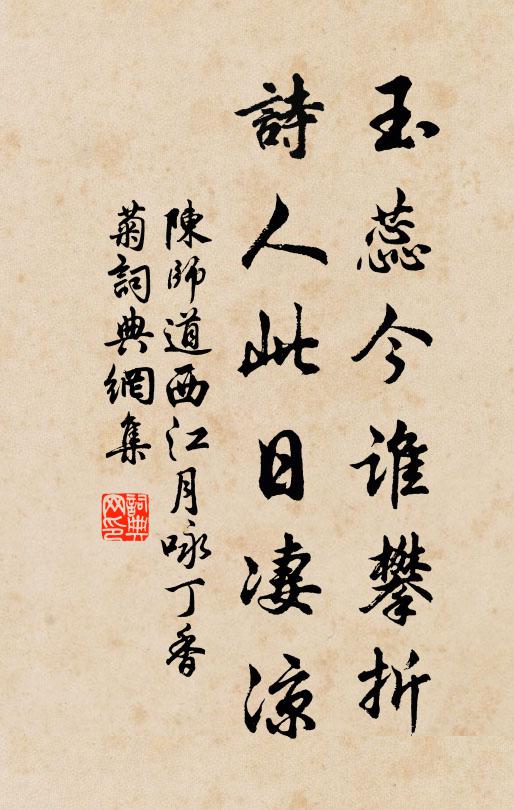 玉蕊今誰攀折
詩人此日淒涼
陳師道西江月咏丁香
菊詞典網集
詞典
网印